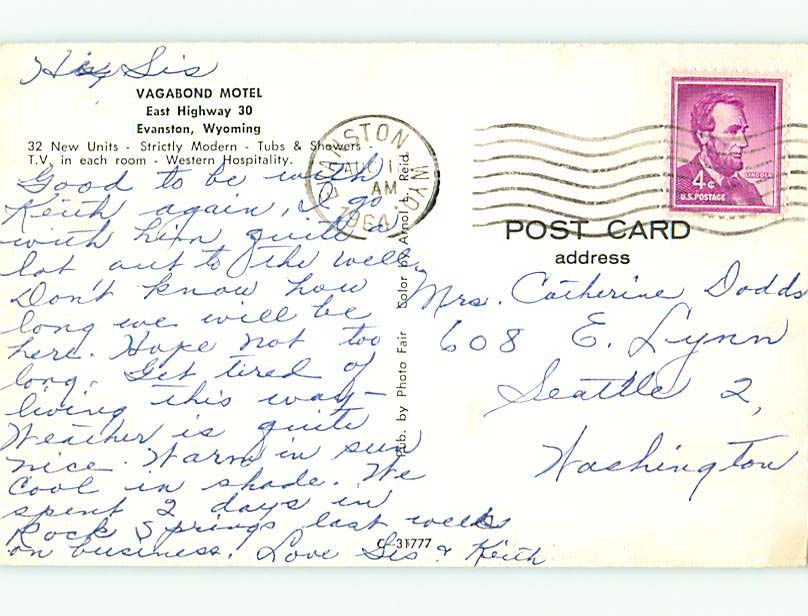 Hi, Sis
VAGABOND MOTEL
East Highway 30
Evanston, Wyoming
32 New Units - Strictly Modern - Tubs & Showers
T.V. in each room - Western Hospitality.
Good to be with
Keith again, I go
with him quite a
lot out to the well.
Don't know how
long we will be
here. Hope not too
long. Get tired of
living this way -
Weather is quite
nice. Warm in sun
cool in shade. We
spent 2 days in
Rock Springs last week
on business. Love Sis & Keith
EVANSTON WYO.
AM
1964
Pub. by Photo Fair Color by Arnold Reid
C-31777
4¢
LINCOLN
U.S. POSTAGE
POST CARD
address
Mrs. Catherine Dodds
608 E. Lynn
Seattle 2,
Washington